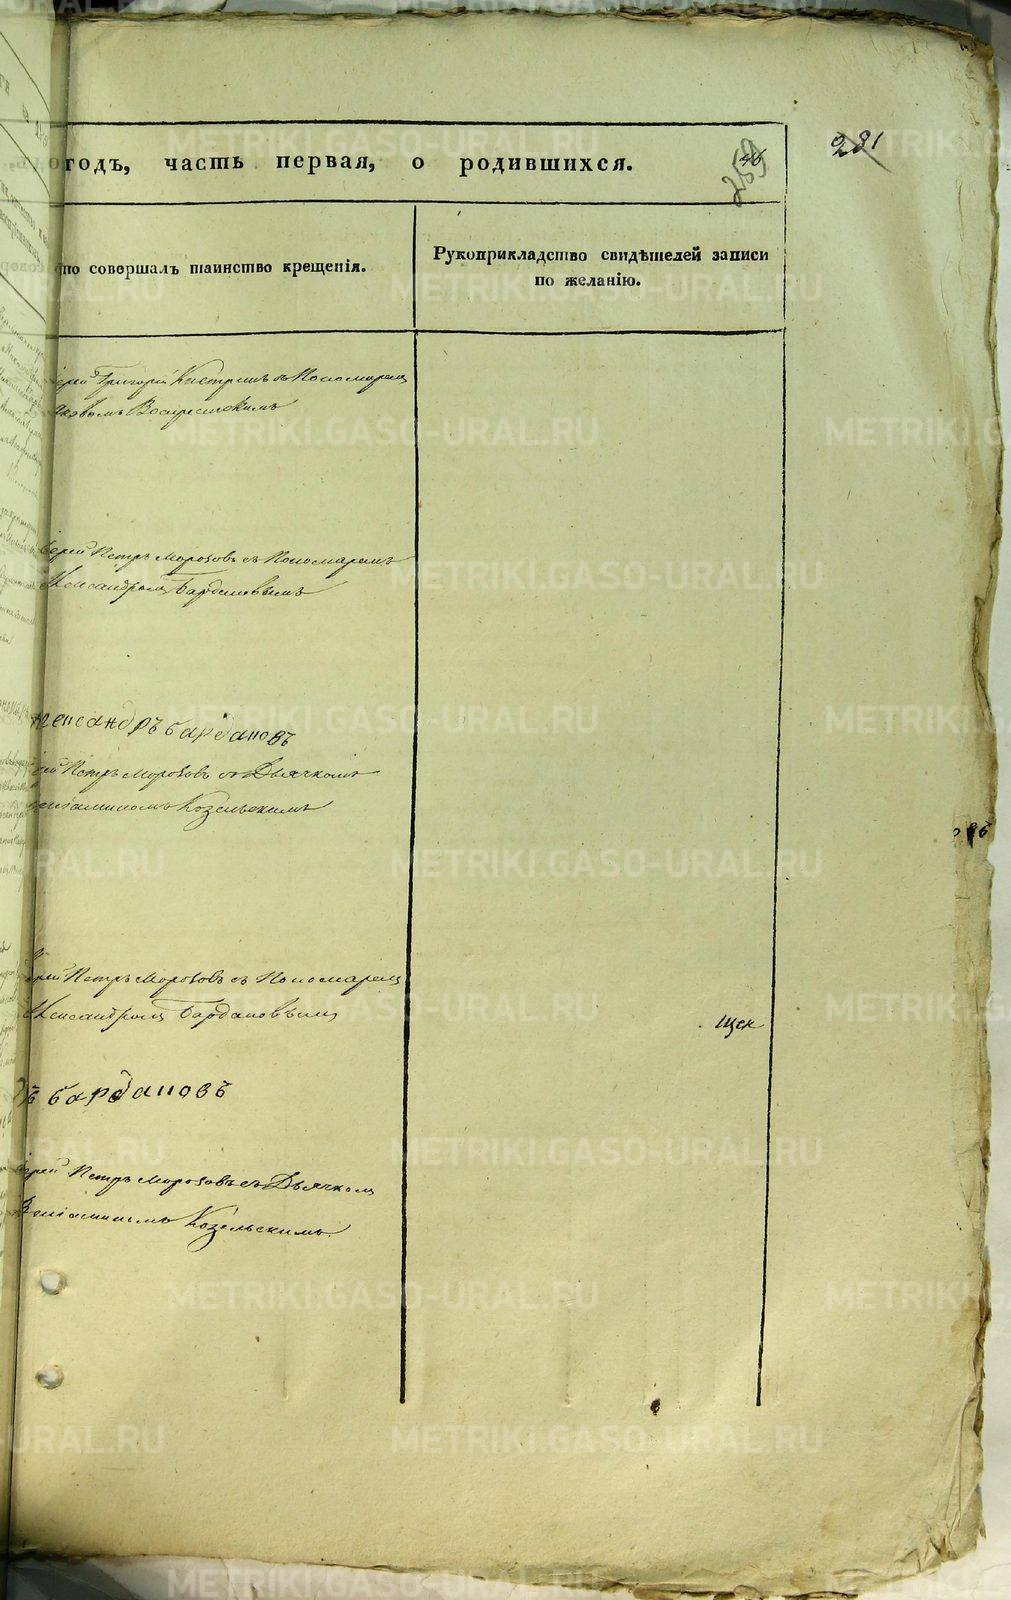 годъ, часть первая, о родившихся.
281
259
то совершалъ таинство крещенія.
Рукоприкладство свидѣтелей записи
по желанію.
Григорій съ Пономаремъ
Воскресенскимъ
Іерей Петръ Морозовъ съ Пономаремъ
Александромъ Бардановымъ
лександръ Бардановъ
ей Петръ Морозовъ съ Дьячкомъ
еніаминомъ Козельскимъ
ерей Петръ Морозовъ съ Пономаремъ
Александромъ Бардановымъ
щек
ъ Бардановъ
Іерей Петръ Морозовъ съ Дьячкомъ
Веніаминомъ Козельскимъ
METRIKI.GASO-URAL.RU